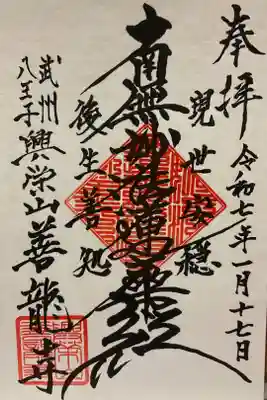 奉拝
令和七年一月十七日
現世安穏
南無妙法蓮華経
後生善処
武州
八王子
興栄山善龍寺